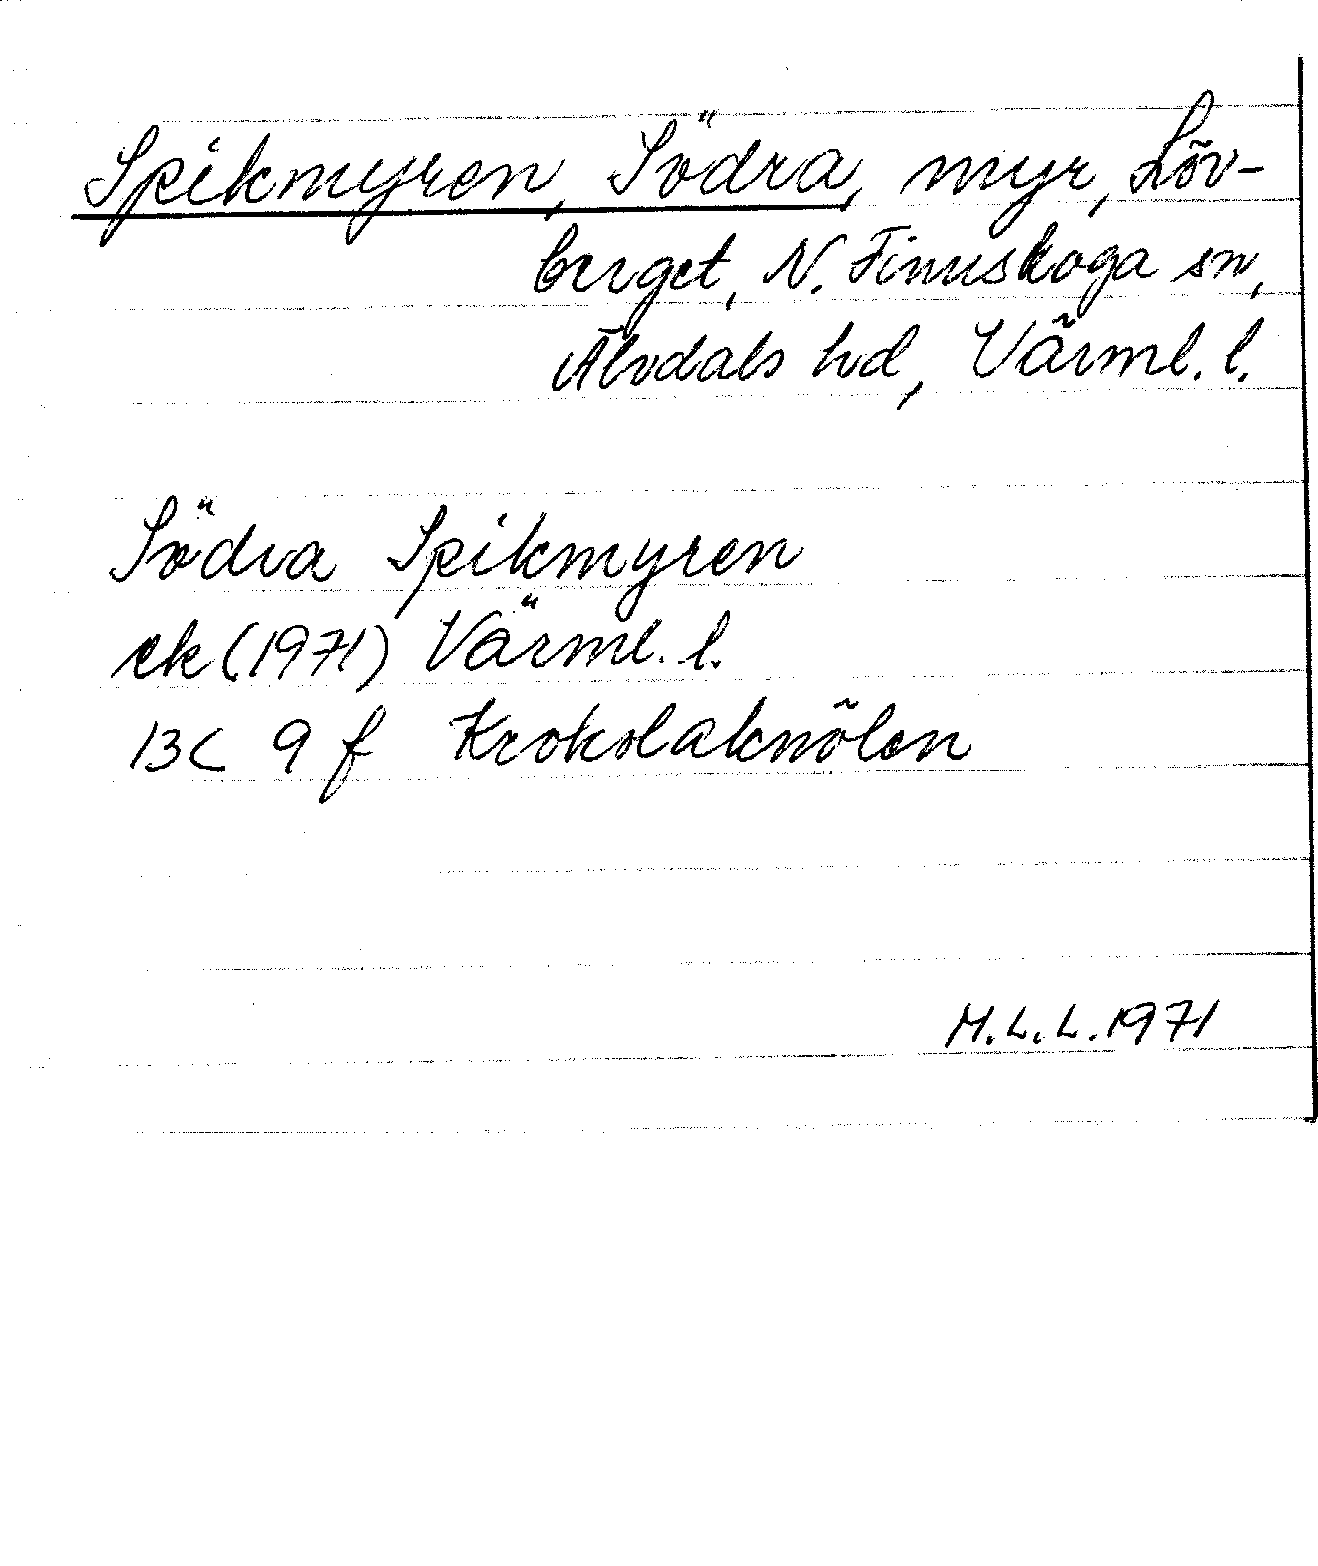 Spikmyren, Södra, myr, Löv-
berget, N. Finnskoga sn,
Älvdals hd, Värml. l.
Södra Spikmyren
ek (1971) Värml. l.
13C 9 f Krokolaknölen
M.L.L. 1971